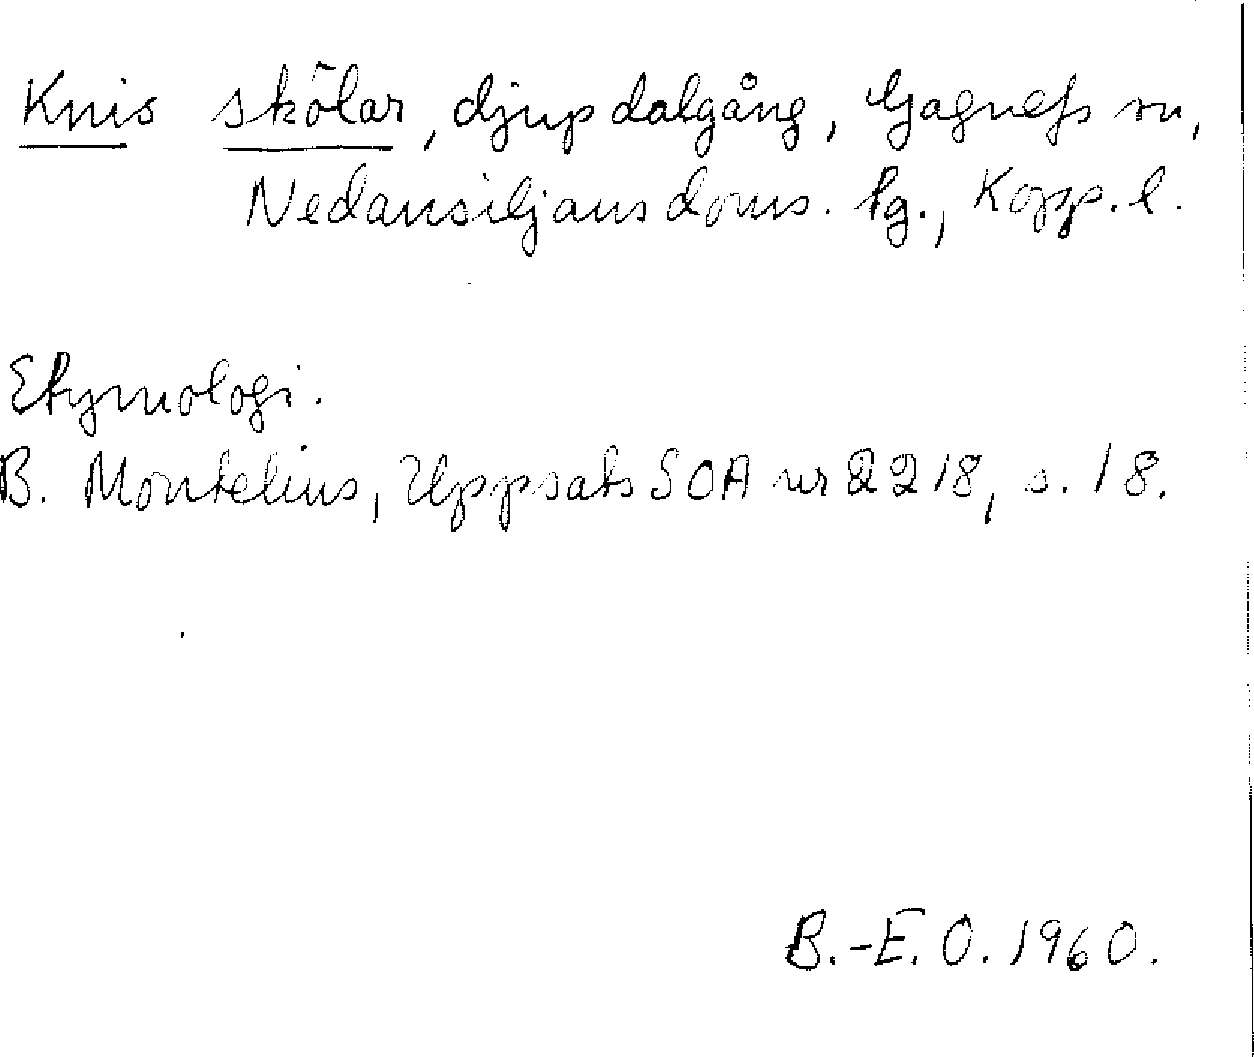 Knis skölar, djup dalgång, Gagnefs sn,
Nedansiljans doms. tg., Kopp. l.
Etymologi.
B. Montelius, Uppsats SOA nr 2218, s. 18.
B.-E. O. 1960.